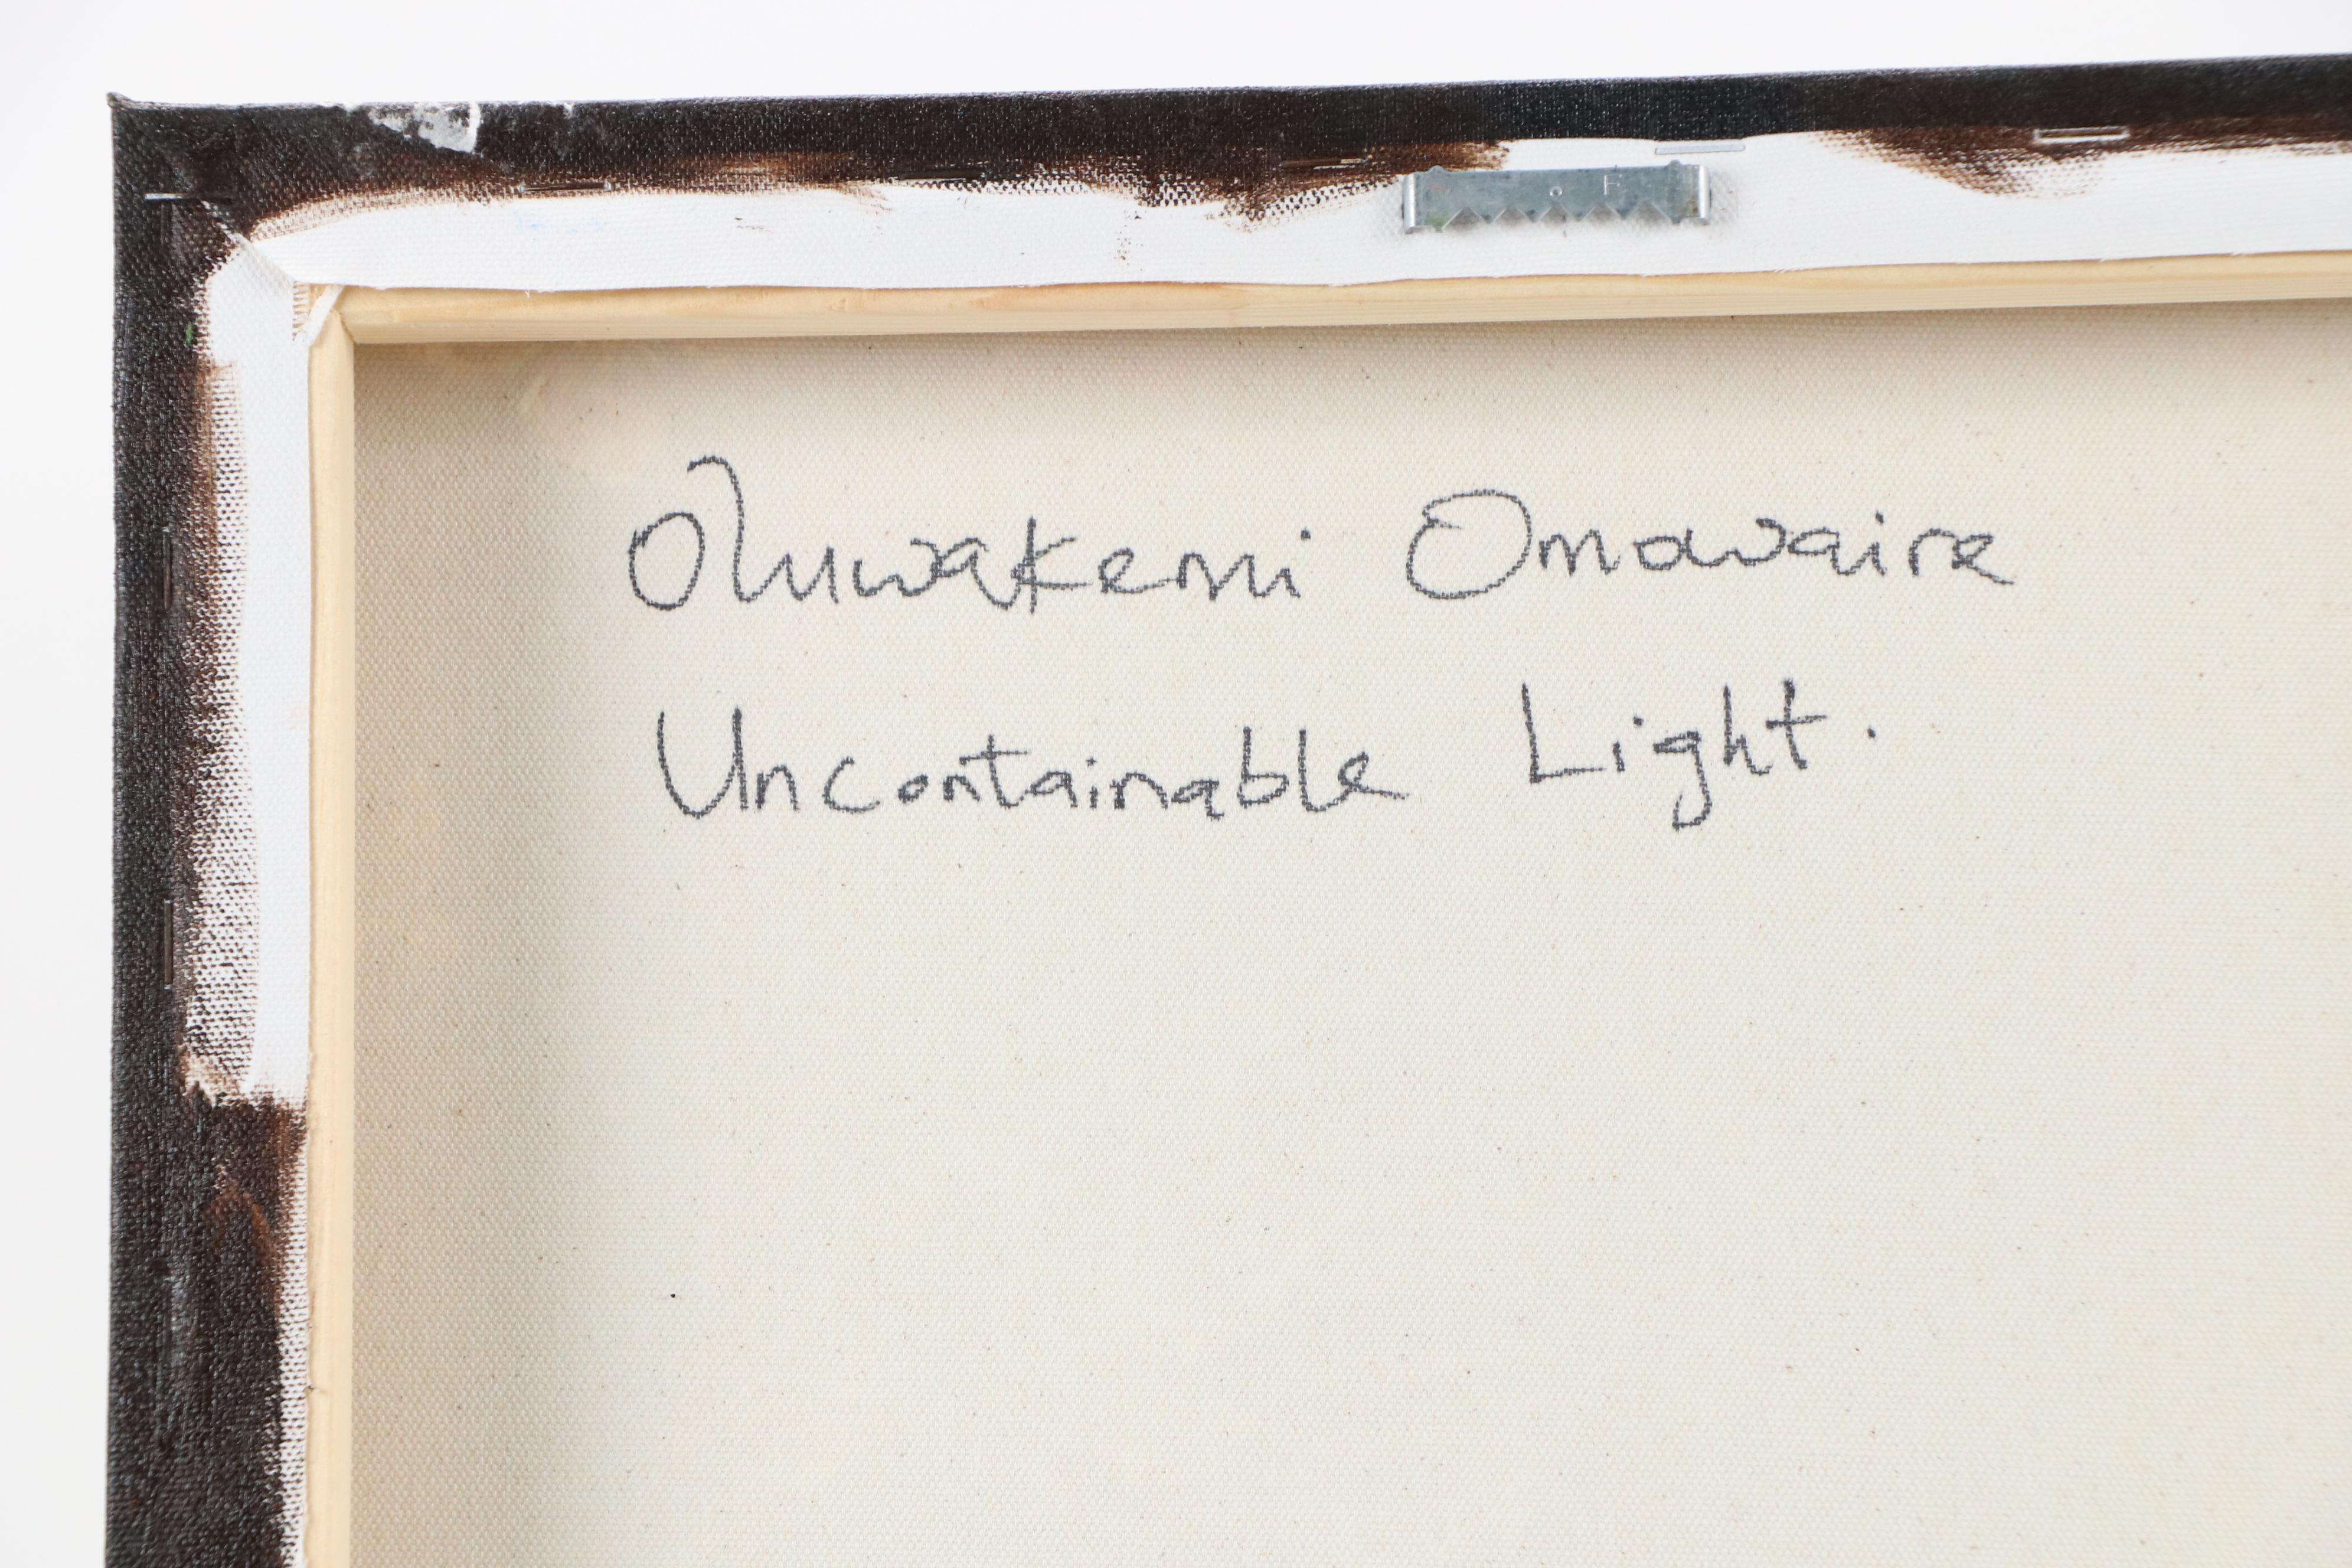 Oluwakemi Omowaire
Uncontainable Light.